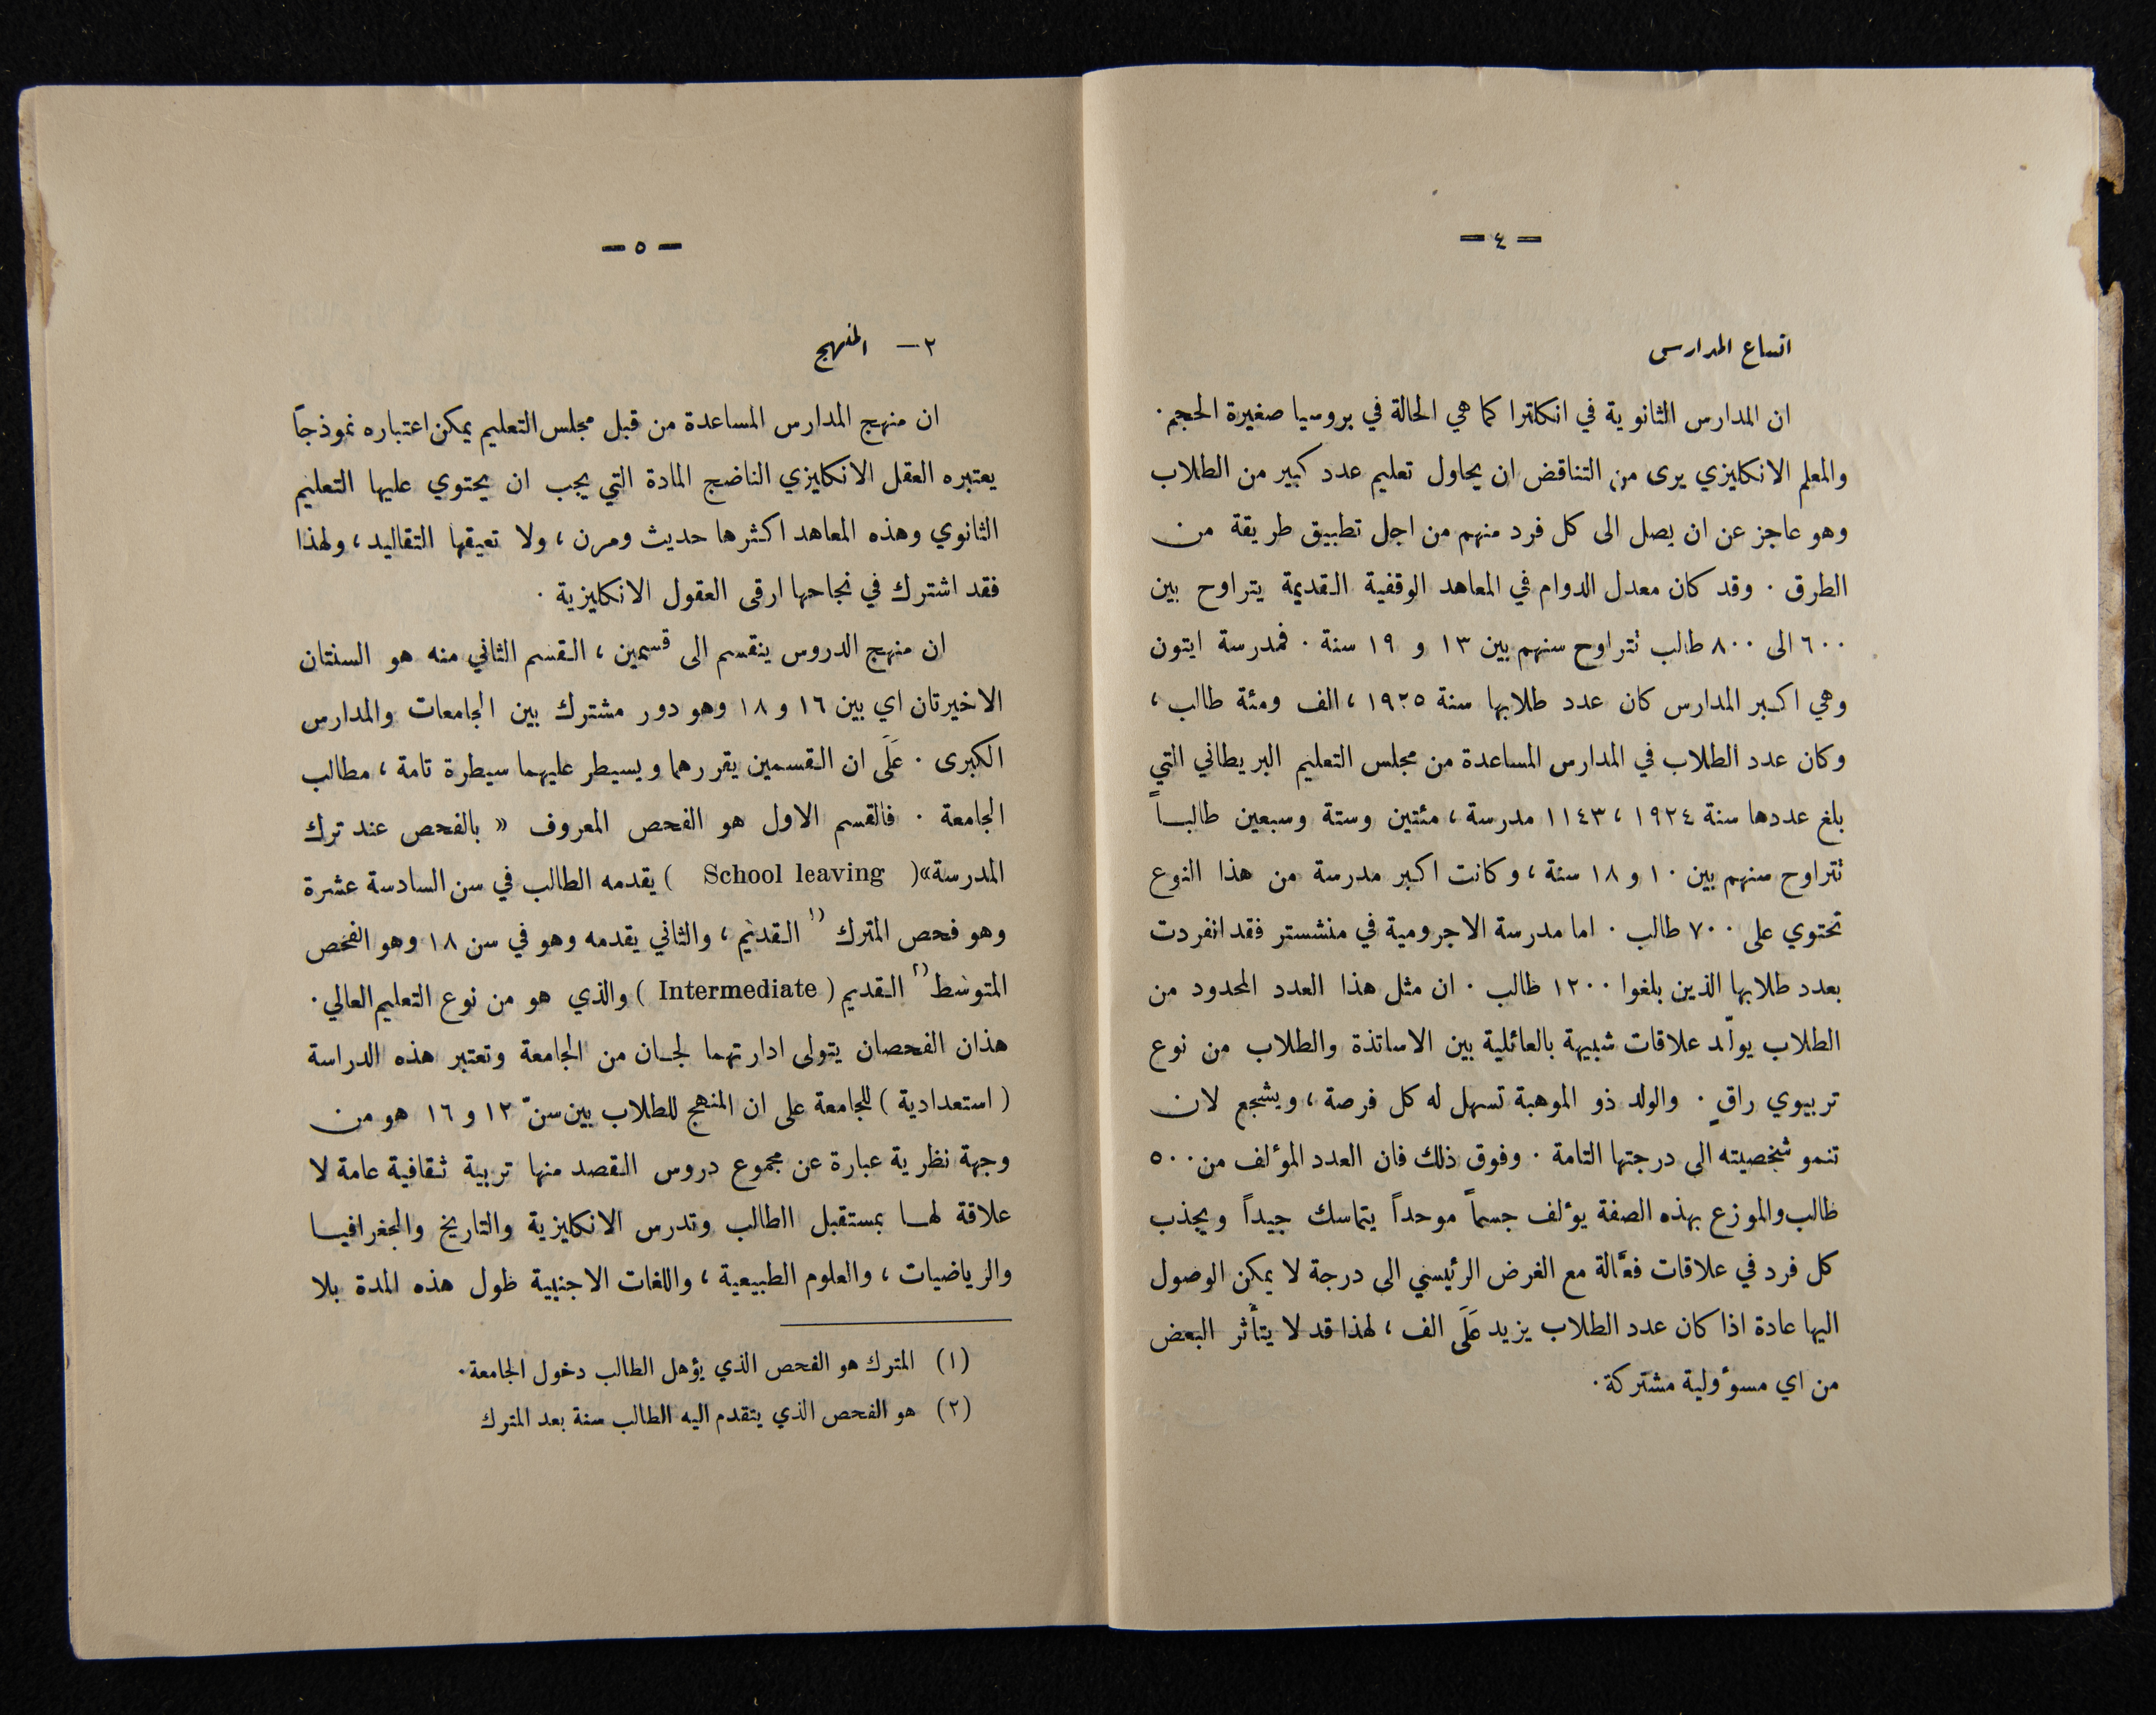 — ٤ —
اتساع المدارس
ان المدارس الثانوية في انكلترا كما هي الحالة في بروسيا صغيرة الحجم .
والمعلم الانكليزي يرى من التناقض ان يحاول تعليم عدد كبير من الطلاب
وهو عاجز عن ان يصل الى كل فرد منهم من اجل تطبيق طريقة من
الطرق . وقد كان معدل الدوام في المعاهد الوقفية القديمة يتراوح بين
٦٠٠ الى ٨٠٠ طالب تتراوح سنهم بين ١٣ و ١٩ سنة . فمدرسة ايتون
وهي اكبر المدارس كان عدد طلابها سنة ١٩٢٥ ، الف ومئة طالب ،
وكان عدد الطلاب في المدارس المساعدة من مجلس التعليم البريطاني التي
بلغ عددها سنة ١٩٢٤ ، ١١٤٣ مدرسة ، مئتين وستة وسبعين طالباً
تتراوح سنهم بين ١٠ و ١٨ سنة ، وكانت اكبر مدرسة من هذا النوع
تحتوي على ٧٠٠ طالب . اما مدرسة الاجرومية في منشستر فقد انفردت
بعدد طلابها الذين بلغوا ١٢٠٠ طالب . ان مثل هذا العدد المحدود من
الطلاب يولّد علاقات شبيهة بالعائلية بين الاساتذة والطلاب من نوع
تربيوي راقٍ . والولد ذو الموهبة تسهل له كل فرصة ، ويشجع لان
تنمو شخصيته الى درجتها التامة . وفوق ذلك فان العدد المؤلف من ٥٠٠
طالب والموزع بهذه الصفة يؤلف جسماً موحداً يتماسك جيداً ويجذب
كل فرد في علاقات فعَّالة مع الغرض الرئيسي الى درجة لا يمكن الوصول
اليها عادة اذا كان عدد الطلاب يزيد عَلَى الف ، لهذا قد لا يتأثر البعض
من اي مسوؤلية مشتركة .
— ٥ —
٢ — المنهج
ان منهج المدارس المساعدة من قبل مجلس التعليم يمكن اعتباره نموذجاً
يعتبره العقل الانكليزي الناضج المادة التي يجب ان يحتوي عليها التعليم
الثانوي وهذه المعاهد اكثرها حديث ومرن ، ولا تعيقها التقاليد ، ولهذا
فقد اشترك في نجاحها ارقى العقول الانكليزية .
ان منهج الدروس ينقسم الى قسمين ، القسم الثاني منه هو السنتان
الاخيرتان اي بين ١٦ و ١٨ وهو دور مشترك بين الجامعات والمدارس
الكبرى . عَلَى ان القسمين يقررهما ويسيطر عليهما سيطرة تامة ، مطالب
الجامعة . فالقسم الاول هو الفحص المعروف « بالفحص عند ترك
المدرسة» ( School leaving ) يقدمه الطالب في سن السادسة عشرة
وهو فحص المترك (١ القديم ، والثاني يقدمه وهو في سن ١٨ وهو الفحص
المتوسط (٢ القديم ( Intermediate ) والذي هو من نوع التعليم العالي .
هذان الفحصان يتولى ادارتهما لجان من الجامعة وتعتبر هذه الدراسة
( استعدادية ) للجامعة على ان المنهج للطلاب بين سنّ ١٢ و ١٦ هو من
وجهة نظرية عبارة عن مجموع دروس القصد منها تربية ثقافية عامة لا
علاقة لها بمستقبل الطالب وتدرس الانكليزية والتاريخ والجغرافيا
والرياضيات ، والعلوم الطبيعية ، واللغات الاجنبية طول هذه المدة بلا
(١) المترك هو الفحص الذي يؤهل الطالب دخول الجامعة .
(٢) هو الفحص الذي يتقدم اليه الطالب سنة بعد المترك